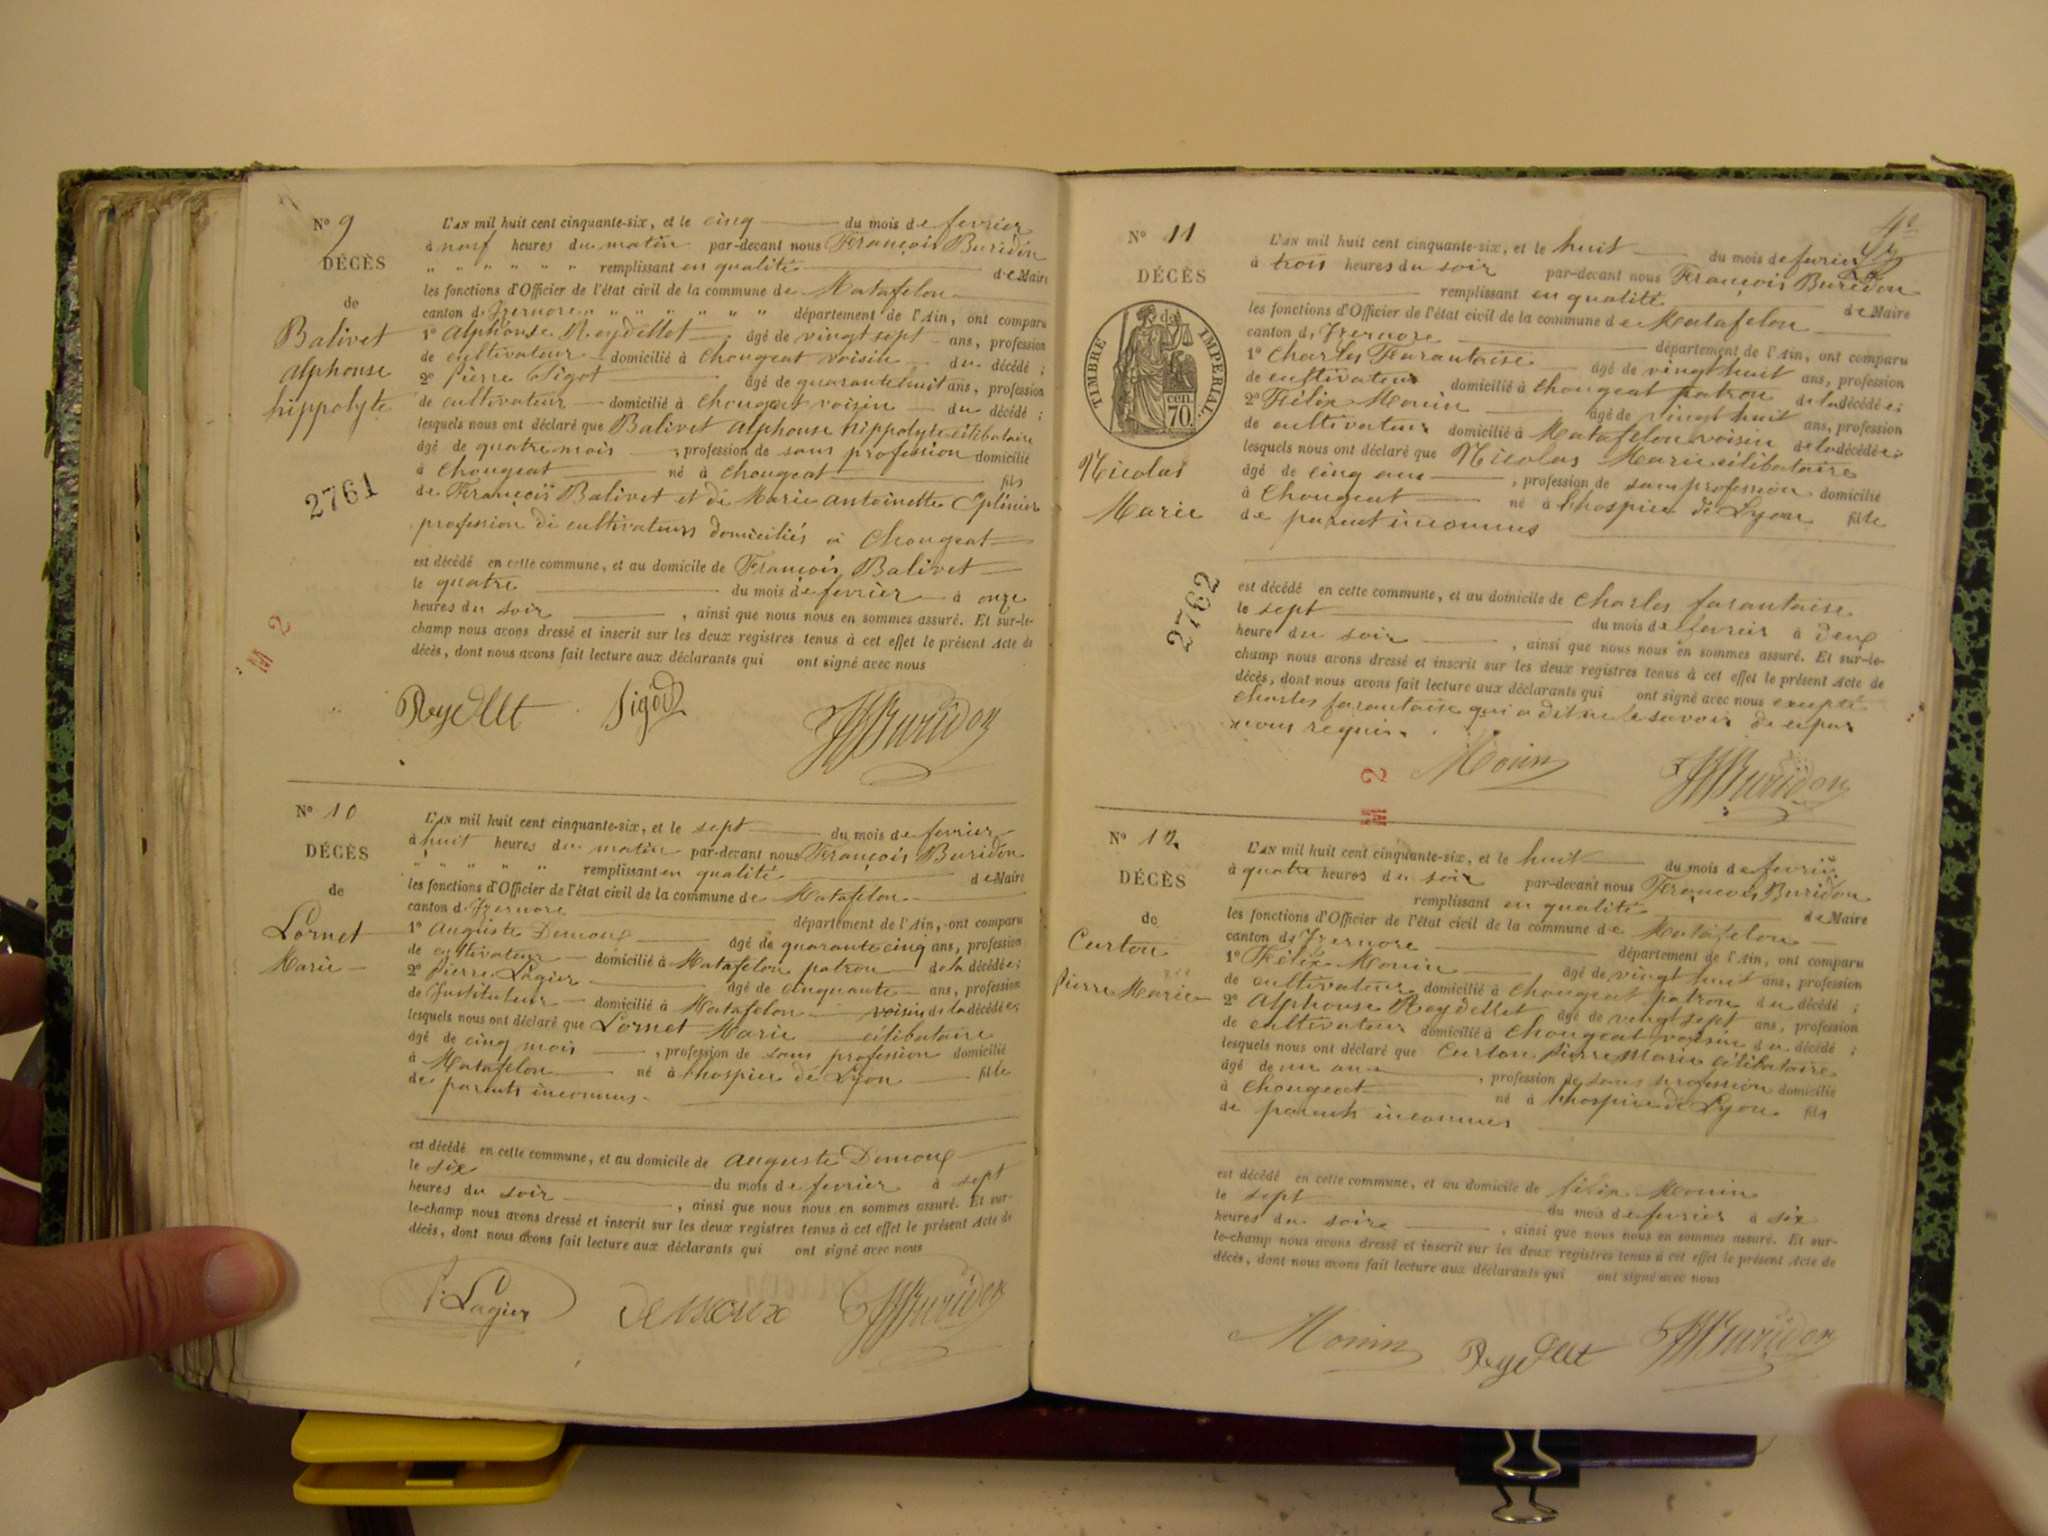 N° 9
DÉCÈS
de
Balivet
alphonse
hippolyte
2761
L'AN mil huit cent cinquante-six, et le cinq du mois de fevrier
à neuf heures du matin par-devant nous François Buridon
" " " " " " remplissant en qualité de Maire
les fonctions d'Officier de l'état civil de la commune de Matafelon
canton d'Izernore " " " " " " " département de l'Ain, ont comparu
1° alphonse Reydellet âgé de vingt sept ans, profession
de cultivateur domicilié à Chougeat voisin du décédé ;
2° pierre Sigot âgé de quarante huit ans, profession
de cultivateur domicilié à Chougeat voisin du décédé ;
lesquels nous ont déclaré que Balivet alphonse hippolyte célibataire
âgé de quatre mois , profession de sans profession domicilié
à Chougeat né à Chougeat fils
de François Balivet et de Marie antoinette
profession de cultivateurs domiciliés à Chougeat
est décédé en cette commune, et au domicile de François Balivet
le quatre du mois de fevrier à onze
heures du soir , ainsi que nous nous en sommes assuré. Et sur-le-
champ nous avons dressé et inscrit sur les deux registres tenus à cet effet le présent Acte de
décès, dont nous avons fait lecture aux déclarants qui ont signé avec nous
Reydellet Sigot Buridon
M 2
N° 10
DÉCÈS
de
Lornet
Marie
L'AN mil huit cent cinquante-six, et le sept du mois de fevrier
à huit heures du matin par-devant nous François Buridon
" " " " " remplissant en qualité de Maire
les fonctions d'Officier de l'état civil de la commune de Matafelon
canton d'Izernore département de l'Ain, ont comparu
1° auguste Demoux âgé de quarante cinq ans, profession
de cultivateur domicilié à Matafelon patron de la décédée ;
2° pierre Lagier âgé de cinquante ans, profession
de Instituteur domicilié à Matafelon voisin de la décédée ;
lesquels nous ont déclaré que Lornet Marie célibataire
âgé de cinq mois , profession de sans profession domicilié
à Matafelon né à l'hospice de Lyon fille
de parents inconnus
est décédé en cette commune, et au domicile de auguste Demoux
le six du mois de fevrier à sept
heures du soir , ainsi que nous nous en sommes assuré. Et sur-
le-champ nous avons dressé et inscrit sur les deux registres tenus à cet effet le présent Acte de
décès, dont nous avons fait lecture aux déclarants qui ont signé avec nous
P. Lagier demoux Buridon
N° 11
DÉCÈS
de
TIMBRE IMPERIAL
70 cen.
Nicolas
Marie
2762
L'AN mil huit cent cinquante-six, et le huit du mois de fevrier
à trois heures du soir par-devant nous François Buridon
remplissant en qualité de Maire
les fonctions d'Officier de l'état civil de la commune de Matafelon
canton d'Izernore département de l'Ain, ont comparu
1° Charles Tarantaise âgé de vingt huit ans, profession
de cultivateur domicilié à Chougeat patron de la décédée ;
2° Félix Monin âgé de vingt huit ans, profession
de cultivateur domicilié à Matafelon voisin de la décédée ;
lesquels nous ont déclaré que Nicolas Marie célibataire
âgé de cinq ans , profession de sans profession domicilié
à Chougeat né à l'hospice de Lyon fille
de parent inconnus
est décédé en cette commune, et au domicile de Charles tarantaise
le sept du mois de fevrier à deux
heure du soir , ainsi que nous nous en sommes assuré. Et sur-le-
champ nous avons dressé et inscrit sur les deux registres tenus à cet effet le présent Acte de
décès, dont nous avons fait lecture aux déclarants qui ont signé avec nous excepté
Charles tarantaise qui a dit ne le savoir de ce par
nous requis.
Monin Buridon
M 2
N° 12
DÉCÈS
de
Curton
pierre Marie
L'AN mil huit cent cinquante-six, et le huit du mois de fevrier
à quatre heures du soir par-devant nous François Buridon
remplissant en qualité de Maire
les fonctions d'Officier de l'état civil de la commune de Matafelon
canton d'Izernore département de l'Ain, ont comparu
1° Félix Monin âgé de vingt huit ans, profession
de cultivateur domicilié à Chougeat patron du décédé ;
2° Alphonse Reydellet âgé de vingt sept ans, profession
de cultivateur domicilié à Chougeat voisin du décédé ;
lesquels nous ont déclaré que Curton pierre Marie célibataire
âgé de un an , profession de sans profession domicilié
à Chougeat né à l'hospice de Lyon fils
de parents inconnus
est décédé en cette commune, et au domicile de félix Monin
le sept du mois de fevrier à six
heures du soire , ainsi que nous nous en sommes assuré. Et sur-
le-champ nous avons dressé et inscrit sur les deux registres tenus à cet effet le présent Acte de
décès, dont nous avons fait lecture aux déclarants qui ont signé avec nous
Monin Reydellet Buridon